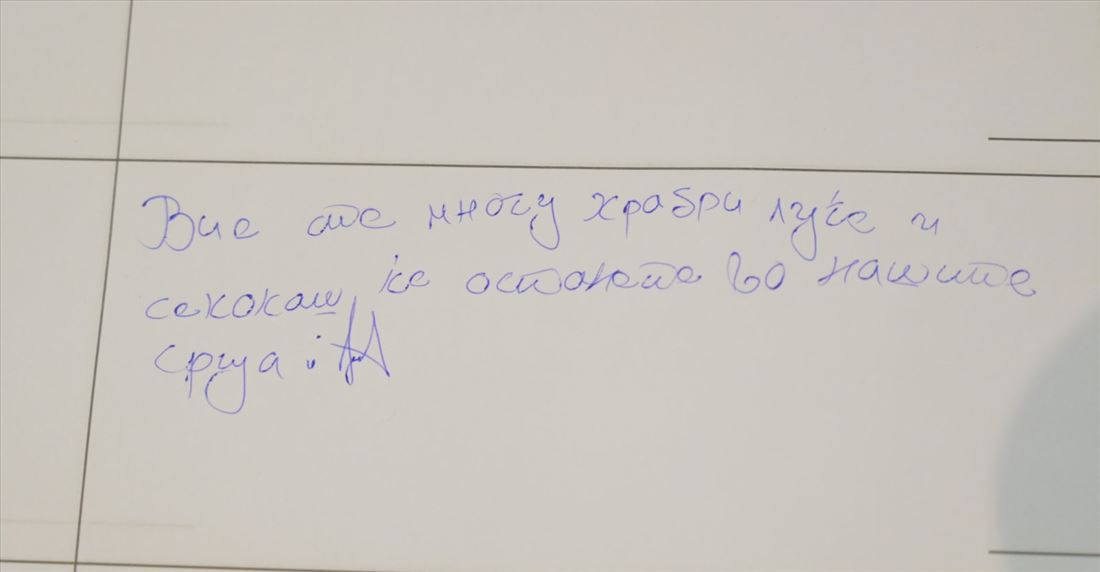 Вие сте многу храбри луѓе и
секокаш ќе останете во нашите
срца